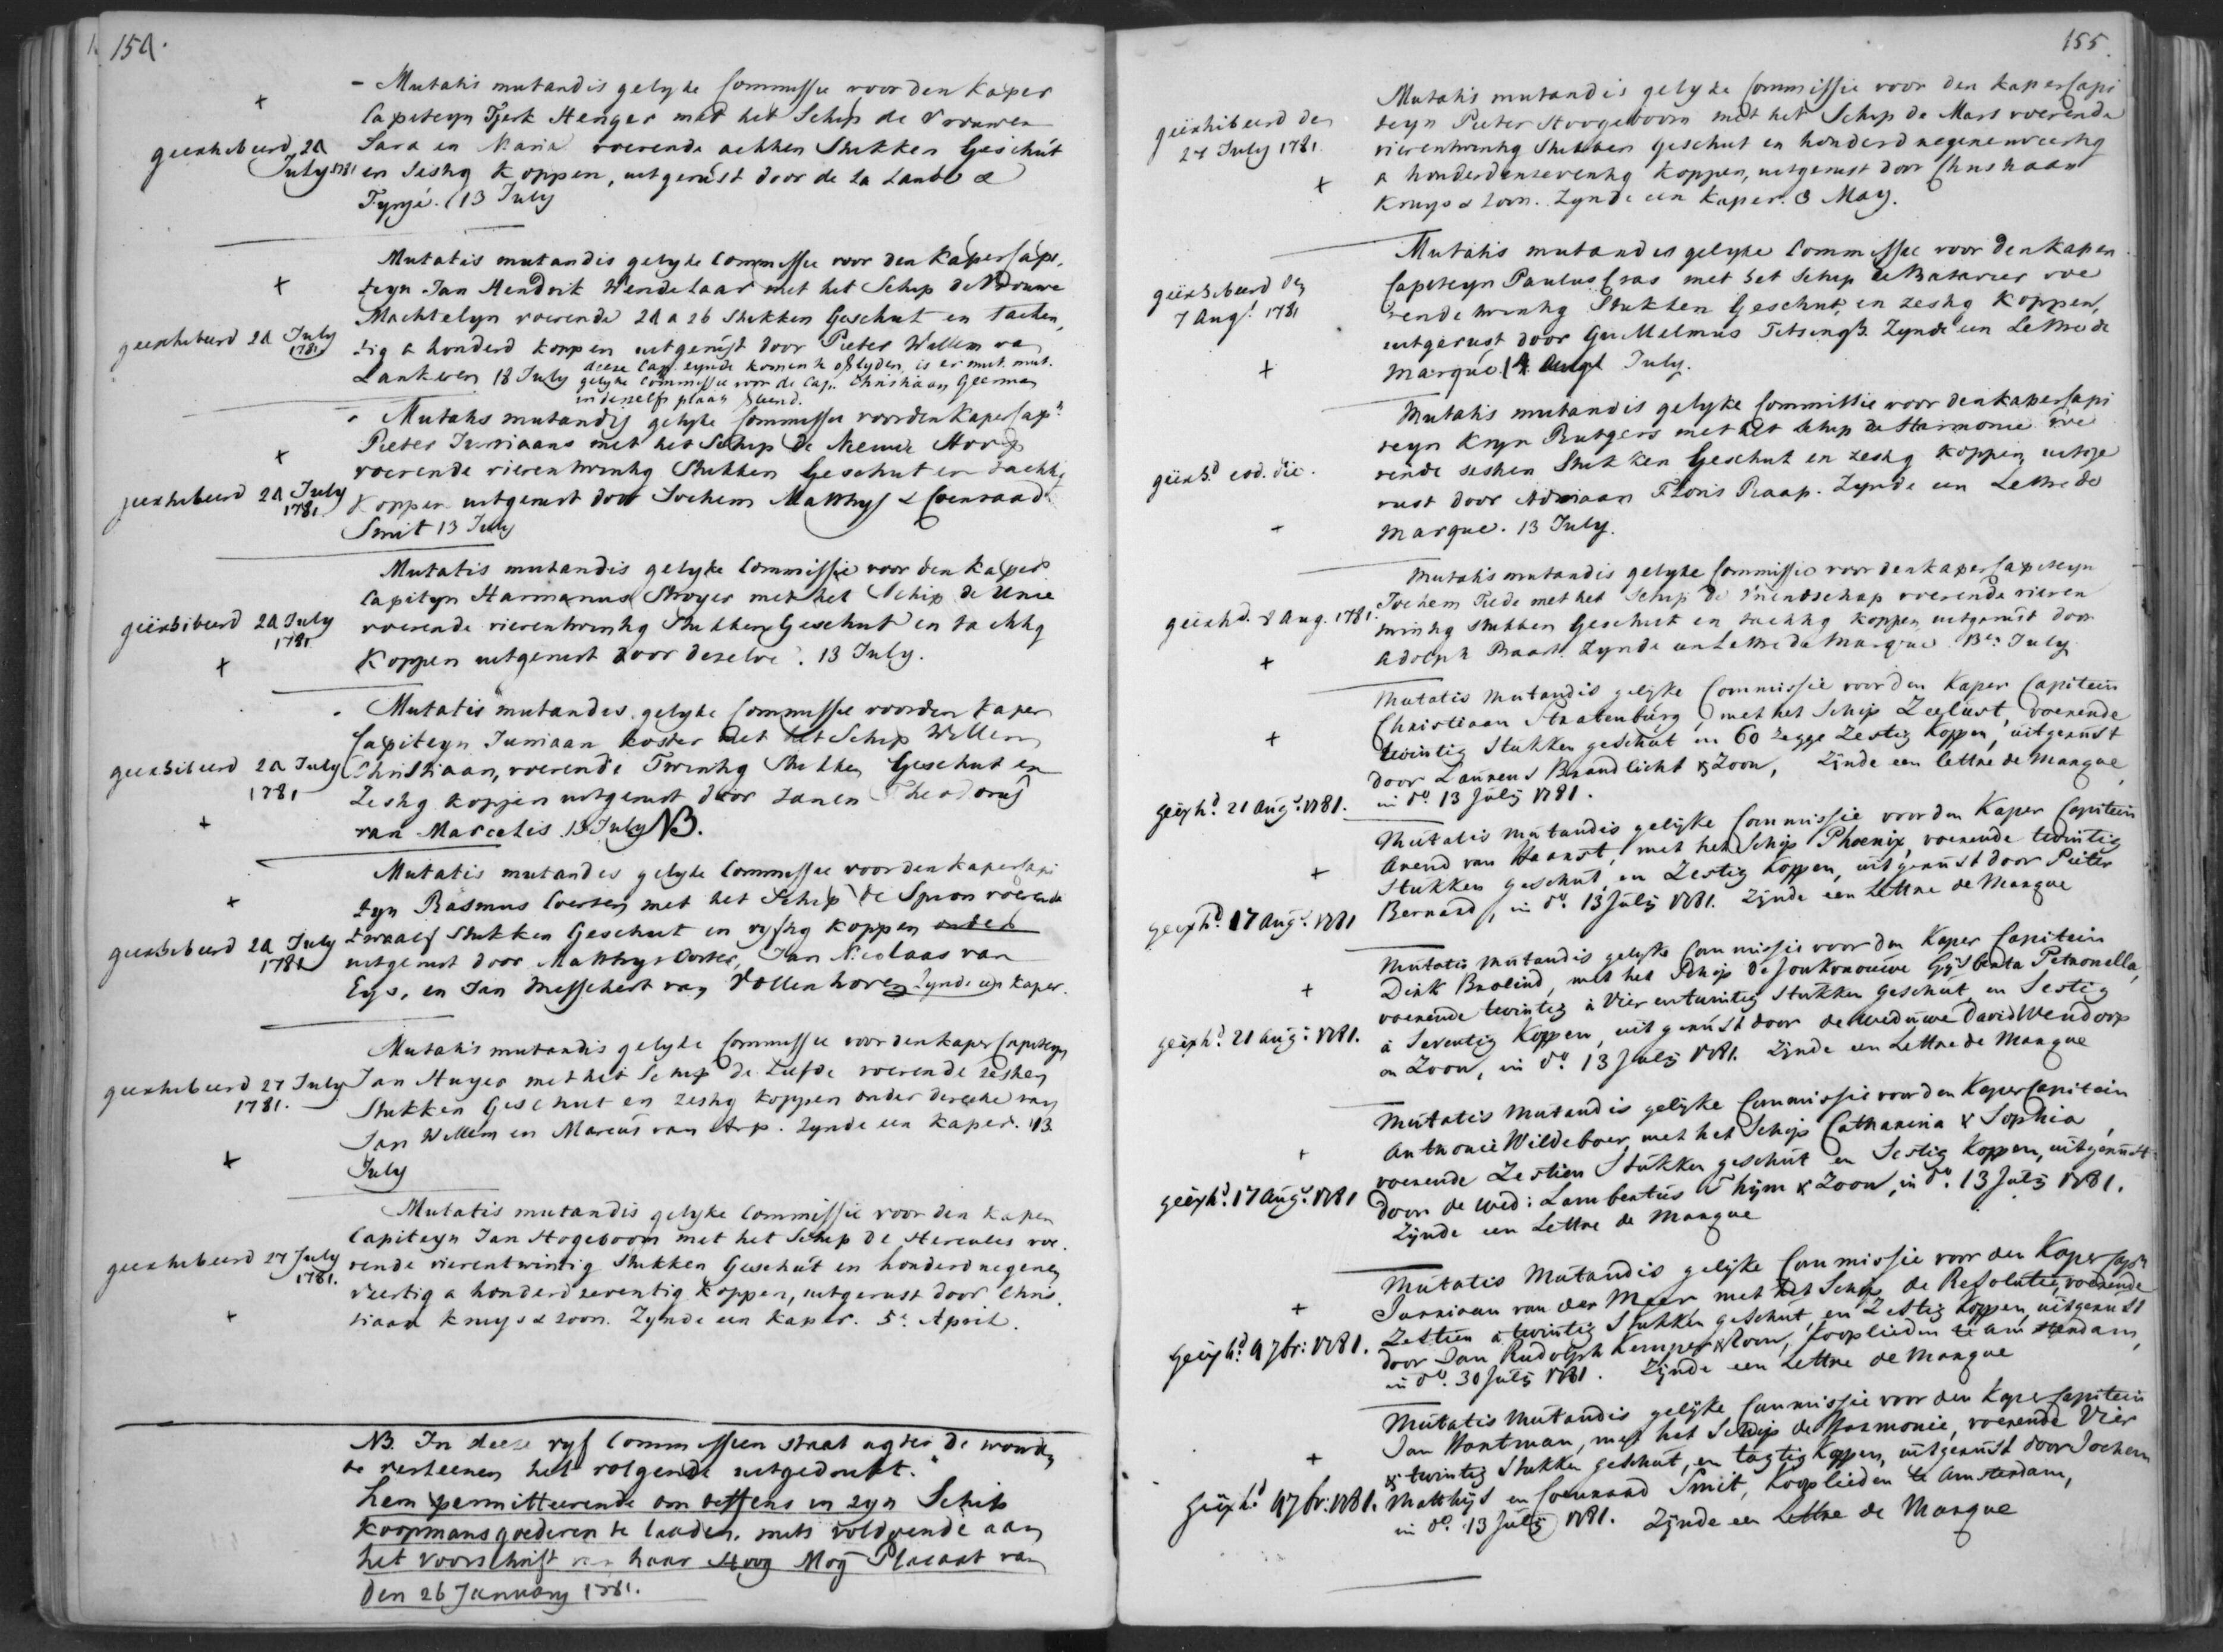 154.
- Mutatis mutandis gelyke Commissie voor den Kaper
Capiteyn Tjerk Henger met het Schip de Vrouwen
geexhibeerd 24 Sara en Maria voerende achtien Stukken Geschut
July 1781 en Sestig Koppen, uitgerust door de la Lande &
Fynjé. (13 July
Mutatis mutandis gelyke Commissie voor den Kaper Capi,
teyn Jan Hendrik Wendelaar met het Schip de Vrouwe
Machtelyn voerende 24 a 26 Stukken Geschut en tachen,
geexhibeerd 24 July tig a honderd koppen uitgerust door Pieter Willem van
1781
Lankeren 18 July deese Cap. eynde komen te oflyden, is er mut. mut.
gelyke Commissie voor de Cap. Christiaan Geerman
in deszelfs plaats
Mutatis mutandis gelyke Commissie voor den Kaper Capn
Pieter Jurriaans met het Schip De Nieuwe Hoop
voerende vierentwintig Stukken Geschut en tachtig
geexhibeerd 24 July
1781
Koppen uitgerust door Jochem Matthys & Coenraad
Smit 13 July
Mutatis mutandis gelyke Commissie voor den Kaper
Capityn Harmanus Stroyer met het Schip de Unie
geëxhibeerd 24 July voerende vierentwintig Stukken Geschut en tachtig
1781
Koppen uitgerust door deselve. 13 July.
Mutatis mutandis gelyke Commissie voor den Kaper
Capiteyn Jurriaan Koster met het Schip Willem
geexhibeerd 24 July Christiaan, voerende Twintig Stukken Geschut en
1781 Zestig koppen uitgerust door Theodorus
van Marcelis 13 July NB.
Mutatis mutandis gelyke Commissie voor den Kaper Capi
tyn Rasmus Coertsen met het Schip de Spion voerende
twaalf Stukken Geschut en vyftig koppen onder
geexhibeerd 24 July
1781
uitgerust door Matthys Ooster, Jan Nicolaas van
Eys, en Jan Messchert van Vollenhoven Zynde een Kaper.
Mutatis mutandis gelyke Commissie voor den Kaper Capiteyn
geexhibeerd 27 July Jan Huyer met het Schip de Liefde voerende seshen
1781.
Stukken Geschut en zestig koppen onder directie van
Jan Willem en Marcus van Arp. Zynde een Kaper. 13
July
Mutatis mutandis gelyke Commissie voor den Kaper
Capiteyn Jan Hogeboom met het Schip de Hercules voe
geexhibeerd 27 July rende vierentwintig Stukken Geschut en honderd negenen
1781.
veertig a honderd seventig Koppen, uitgerust door Chris
tiaan Kruys & Zoon. Zynde een Kaper. 5e April.
NB. In deese vyf Commissien staat agter de woorden
te verleenen het volgende uitgedrukt."
hem permitteerende om teffens in zyn Schip
Koopmansgoederen te laaden, mits voldoende aan
het Voorschrift van haar Hoog Mog Placaat van
Den 26 January 1781.
155.
Mutatis mutandis gelyke Commissie voor den Kaper Capi
geëxhibeerd den teyn Pieter Hoogeboom met het Schip de Mars voerende
24 July 1781. vierentwintig Stukken geschut en honderd negenenveertig
a honderdenseventig Koppen, uitgerust door Christiaan
Kruys & Zoon. Zynde een Kaper. 3 May.
Mutatis mutandis gelyke Commissie voor den Kaper
geëxhibeerd den Capiteyn Paulus Cras met het Schip de Batavier voe
7 Augt. 1781
rende twintig Stukken Geschut, en zestig Koppen,
uitgerust door Guillelmus Titsingh. Zynde een Lettre de
marque. 14 Augt July.
Mutatis mutandis gelyke Commissie voor den Kaper Capi
teyn Kryn Rutgers met het Schip de Harmonie voe
geëxhd. eod. die. rende sestien Stukken Geschut en zestig Koppen uitge
rust door Adriaan Floris Raap. Zynde een Lettre de
marque. 13 July.
Mutatis mutandis gelyke Commissie voor den Kaper Capiteyn
geëxhd. 8 Aug. 1781. Jochem Tiede met het Schip de Vriendschap voerende vieren
twintig stukken Geschut en tachtig koppen uitgerust door
Adolph Raart. Zynde een Lettre de marque. 13en July
Mutatis mutandis gelijke Commissie voor den Kaper Capitein
Christiaan Straatenburg, met het Schip Zeelust, voerende
twintig Stukken geschut en 60 zegge Zestig Koppen, uitgerust
door Laurens Brandlicht & Zoon, Zijnde een lettre de marque
geëxhd. 21 Augt. 1781. in do. 13 Julij 1781.
Mutatis mutandis gelijke Commissie voor den Kaper Capitein
Arend van Haarst, met het Schip Phoenix, voerende twintig
Stukken geschut, en Zestig Koppen, uitgerust door Pieter
geëxhd. 17 Augt. 1781 Bernard, in do. 13 Julij 1781. Zijnde een Lettre de Marque
Mutatis mutandis gelijke Commissie voor den Kaper Capitein
Dirk Broeind, met het Schip de Jonkvrouwe Gijsberta Petronella,
voerende twintig à Vier en twintig Stukken geschut en Sestig
geëxhd. 21 Augt. 1781. à Seventig Koppen, uitgerust door de weduwe David Wendorp
en Zoon, in do. 13 Julij 1781. Zijnde een Lettre de Marque
Mutatis mutandis gelijke Commissie voor den Kaper Capitein
Anthonie Wildeboer, met het Schip Catharina & Sophia,
voerende Zestien Stukken geschut en Sestig Koppen, uitgerust
geëxhd. 17 Augt. 1781 door de Wed: Lambertus Thijm & Zoon, in do. 13 Julij 1781.
Zijnde een Lettre de Marque
Mutatis Mutandis gelijke Commissie voor den Kaper Capn
Jurriaan van der Meer met het Schip de Resolutie, voerende
Zestien à twintig Stukken geschut, en Zestig Koppen, uitgerust
geëxhd. 4 7br: 1781. door Jan Rudolph Kemper & Zoon, Kooplieden te Amsterdam,
in do. 30 Julij 1781. Zijnde een Lettre de Marque
Mutatis Mutandis gelijke Commissie voor den Kaper Capitein
Jan Hartman, met het Schip de Harmonie, voerende Vier
& twintig Stukken geschut, en tagtig Koppen, uitgerust door Jochem
geëxhd 4 7br: 1781. Matthijs en Coenraad Smit, Kooplieden te Amsterdam,
in do. 13 Julij 1781. Zijnde een Lettre de Marque